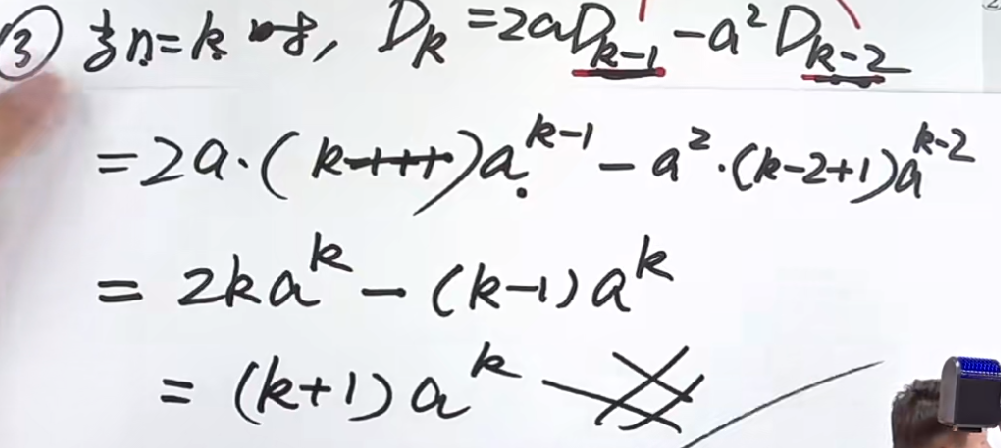 ③ 当n=k时, D_k=2aD_{k-1}-a²D_{k-2}
=2a·(k-1+1)a^{k-1}-a²·(k-2+1)a^{k-2}
=2ka^k-(k-1)a^k
=(k+1)a^k